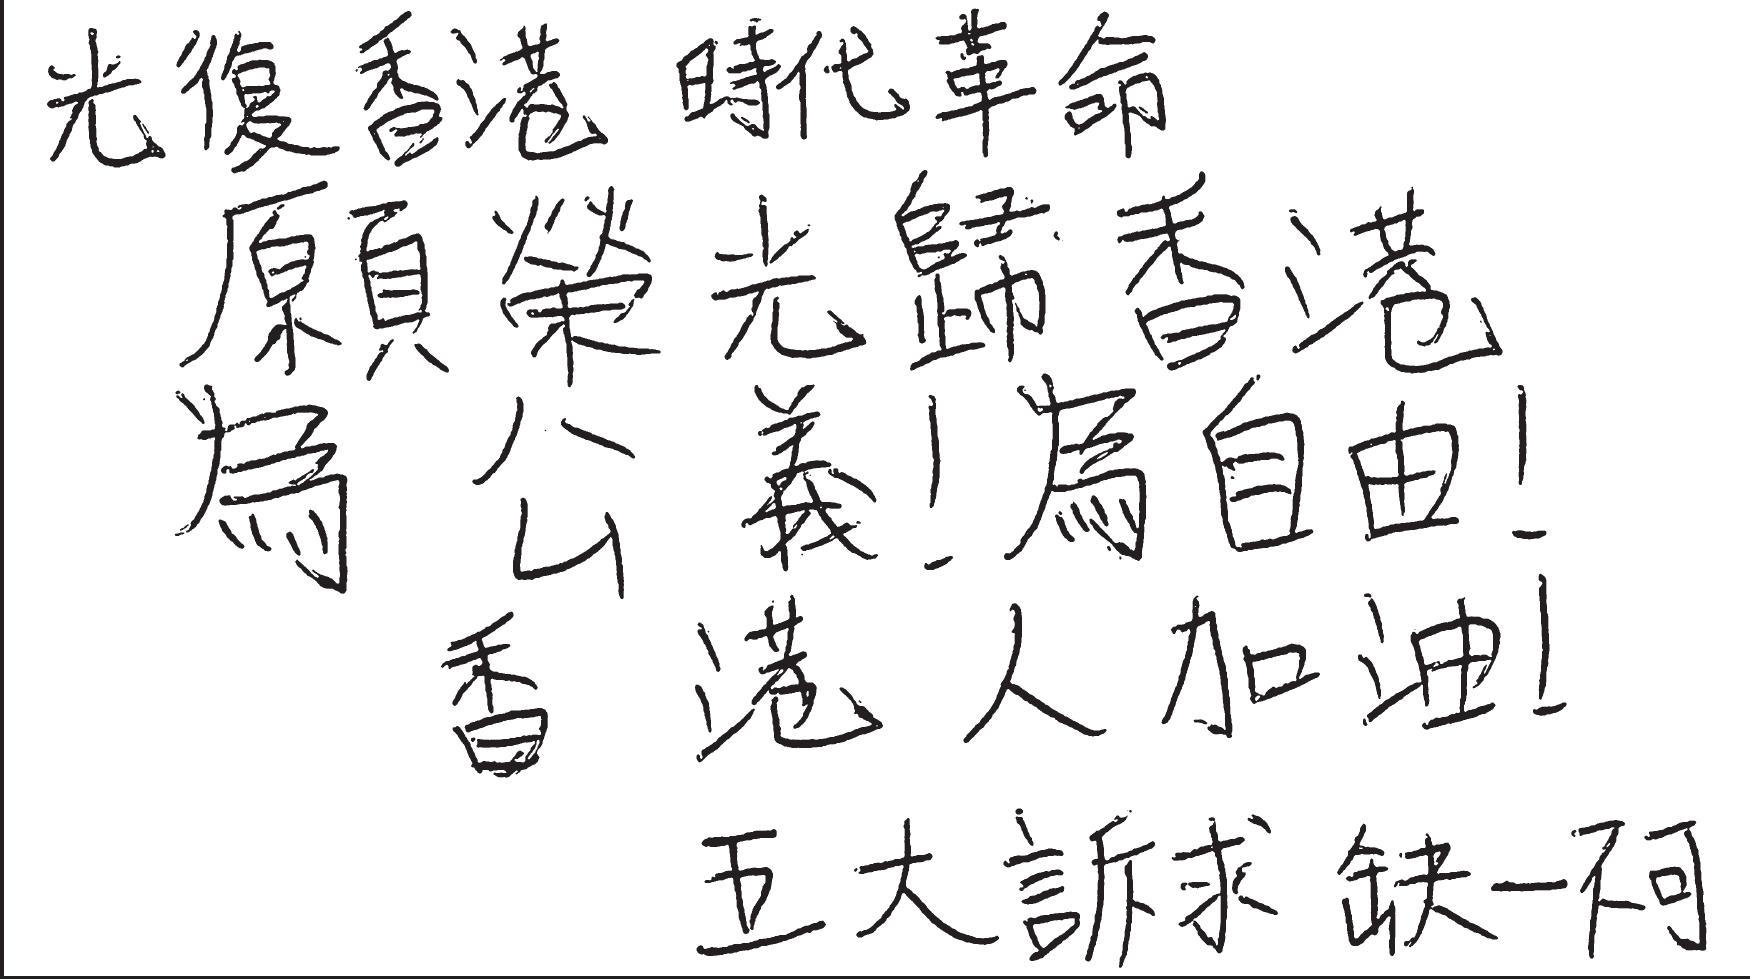 光復香港 時代革命
原頁榮光歸香港
為公義！為自由！
香港人加油！
五大訴求 缺一不可